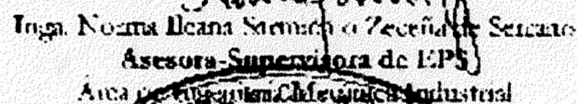 Inga. Norma Ileana Sarmiento Zeceña de Serrano
Asesora-Supervisora de EPS
Área de Ingeniería Mecánica Industrial